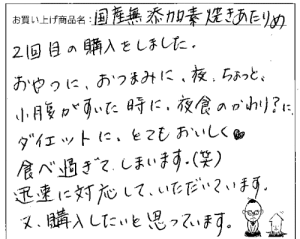 お買い上げ商品名:国産無添加素焼きあたりめ
2回目の購入をしました。
おやつに、おつまみに、夜、ちょっと、
小腹がすいた時に、夜食のかわり?に、
ダイエットに、とてもおいしく♥
食べ過ぎてしまいます。(笑)
迅速に対応して、いただいています。
又、購入したいと思っています。